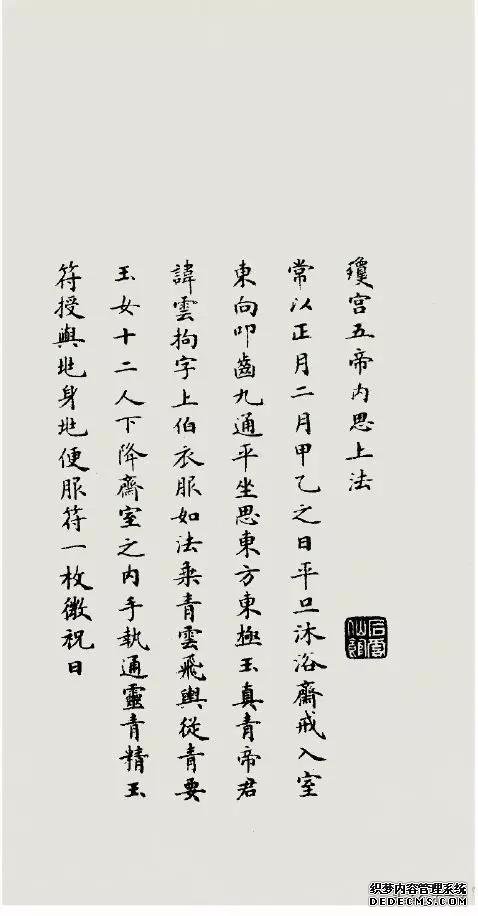 瓊宮五帝内思上法
常以正月二月甲乙之日平旦沐浴齋戒入室
東向叩齒九通平坐思東方東極玉真青帝君
諱雲拘字上伯衣服如法乘青雲飛輿從青要
玉女十二人下降齋室之内手執通靈青精玉
符授與地身地便服符一枚微祝曰
织梦内容管理系统
DEDECMS.COM